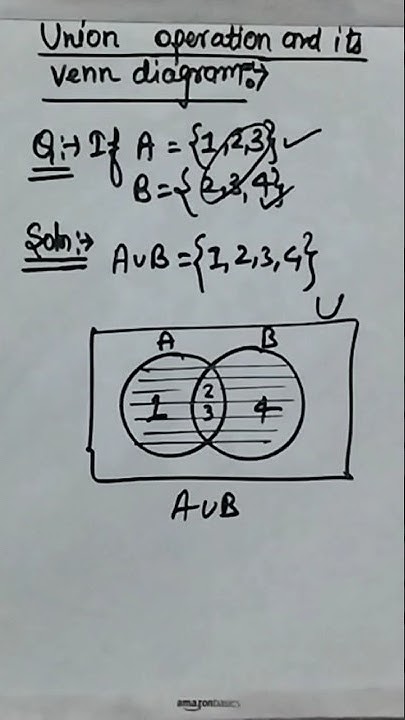 Union operation and its
venn diagram:→
Q:→ If A = {1,2,3} ✓
B = {2,3,4} ✓
Soln:→ A∪B = {1,2,3,4}
U
A B
1 2 3 4
A∪B
amazonbasics